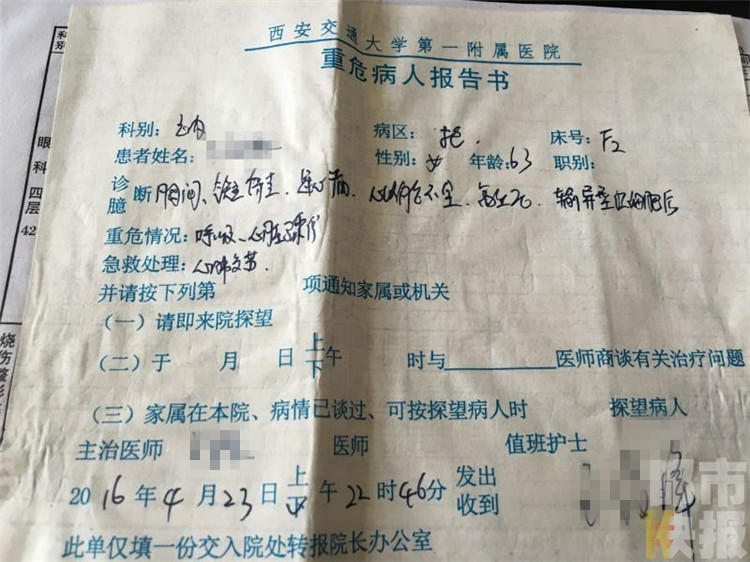 西安交通大学第一附属医院
重危病人报告书
科别: 病区: 床号: F2
患者姓名: 性别: 女 年龄: 63 职别:
诊断
臆
重危情况: 呼吸、心脏骤停
急救处理: 心肺复苏
并请按下列第 项通知家属或机关
(一)请即来院探望
(二)于 月 日 上下午 时与 医师商谈有关治疗问题
(三)家属在本院、病情已谈过、可按探望病人时 探望病人
主治医师 医师 值班护士
2016年4月23日上下午22时46分 发出
收到
此单仅填一份交入院处转报院长办公室
科别
眼科四层
42
烧伤整形
都市快报